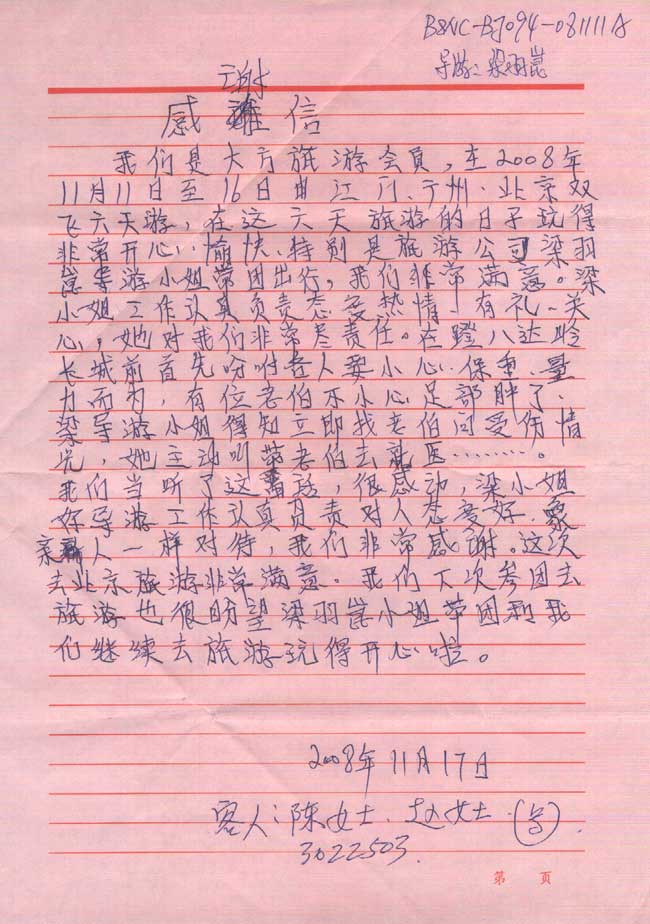 BSNC-BJ094-081111A
导游：梁羽崑
感谢信
我们是大方旅游会员，在2008年
11月11日至16日由江门、广州、北京双
飞六天游，在这六天旅游的日子玩得
非常开心、愉快、特别是旅游公司梁羽
崑导游小姐带团出行，我们非常满意。梁
小姐工作认真负责态度热情、有礼、关
心，她对我们非常尽责任。在蹬八达岭
长城前首先吩咐各人要小心、保重、量
力而为，有位老伯不小心足部胖了、
梁导游小姐得知立即找老伯问受伤情
况，她主动叫带老伯去就医………。
我们当听了这番话，很感动，梁小姐
好导游工作认真负责对人态度好、象
亲人一样对待，我们非常感谢。这次
去北京旅游非常满意。我们下次参团去
旅游也很盼望梁羽崑小姐带团和我
们继续去旅游玩得开心啦。
2008年11月17日
客人：陈女士、赵女士
3022503.
第 页